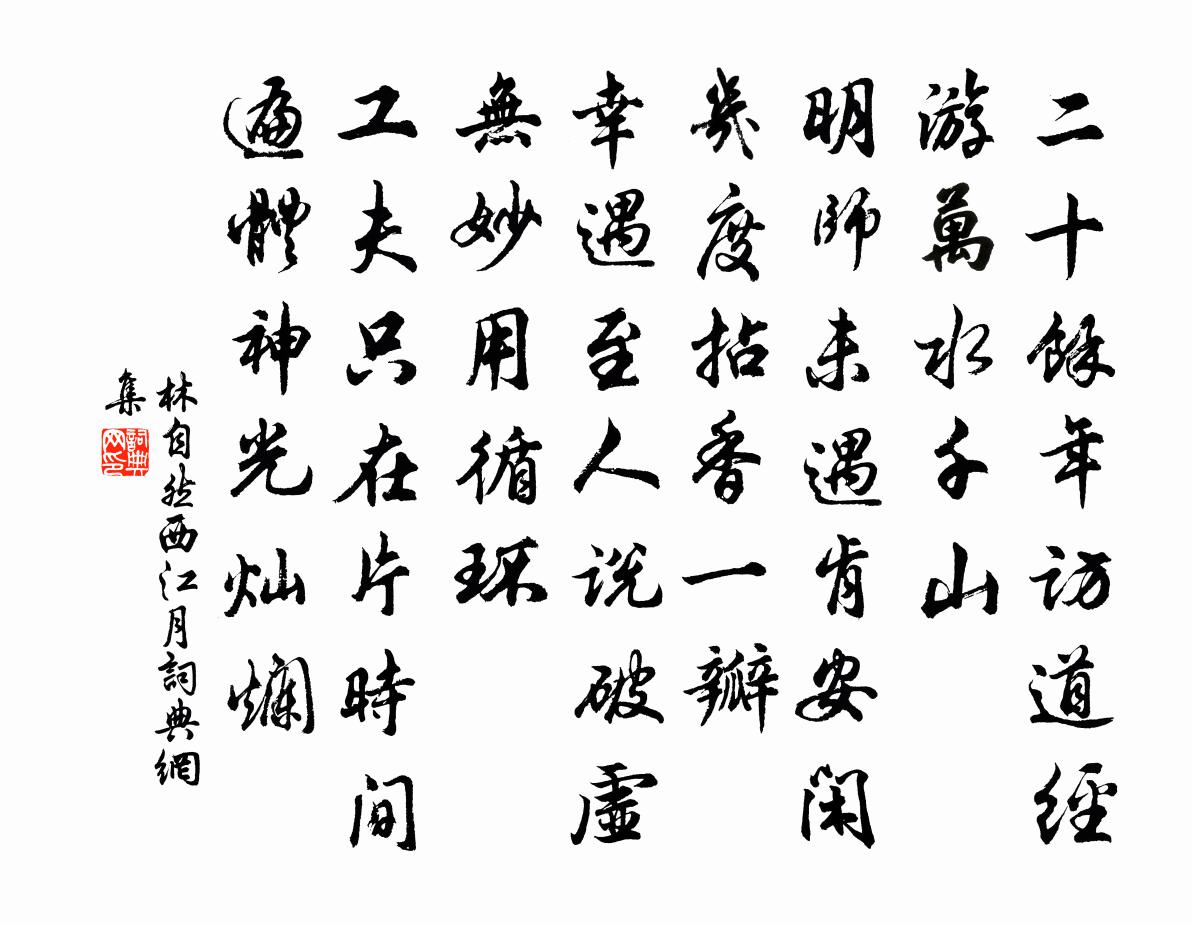 二十餘年訪道經
游萬水千山
明師未遇肯安閑
幾度拈香一瓣
幸遇至人說破虛
無妙用循環
工夫只在片時間
遍體神光灿爛
林自然西江月詞典網
集
詞典
网印